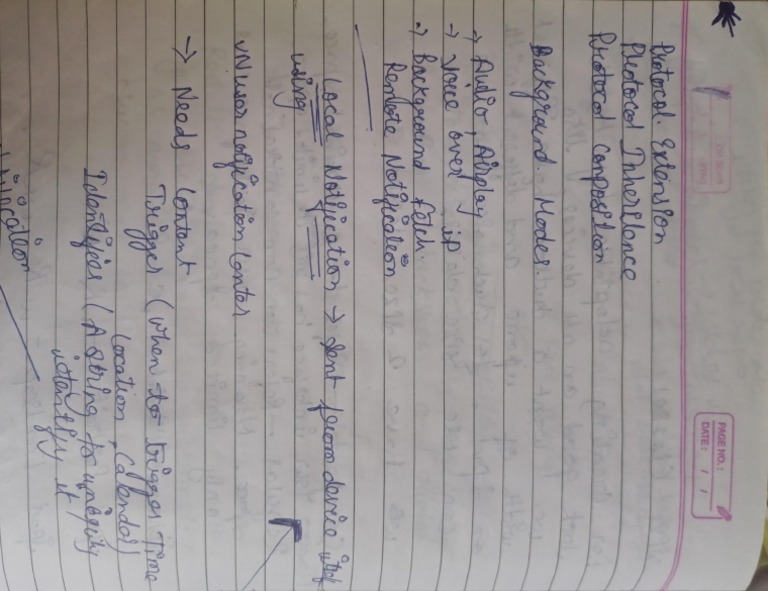 PAGE NO.:
DATE: / /
Protocol Extension
Protocol Inheritance
Protocol Composition
Background Modes
→ Audio, Airplay
→ Voice over ip
→ Background fetch
Remote Notification
Local Notification → Sent from device itself
using
UNUser notification Center
→ Needs Content
Trigger (When to trigger Time
Location, Calendar)
Identifier (A string to uniquely
identify it)